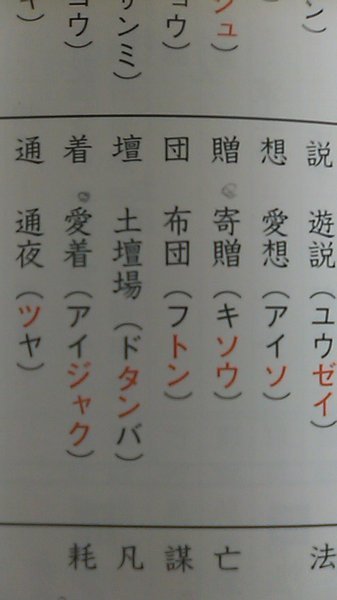 ン）
）
ュ）
ョウ）
サンミ）
ョウ）
説　遊説（ユウゼイ）
想　愛想（アイソ）
贈　寄贈（キソウ）
団　布団（フトン）
壇　土壇場（ドタンバ）
着　愛着（アイジャク）
通　通夜（ツヤ）
法
亡
謀
凡
耗